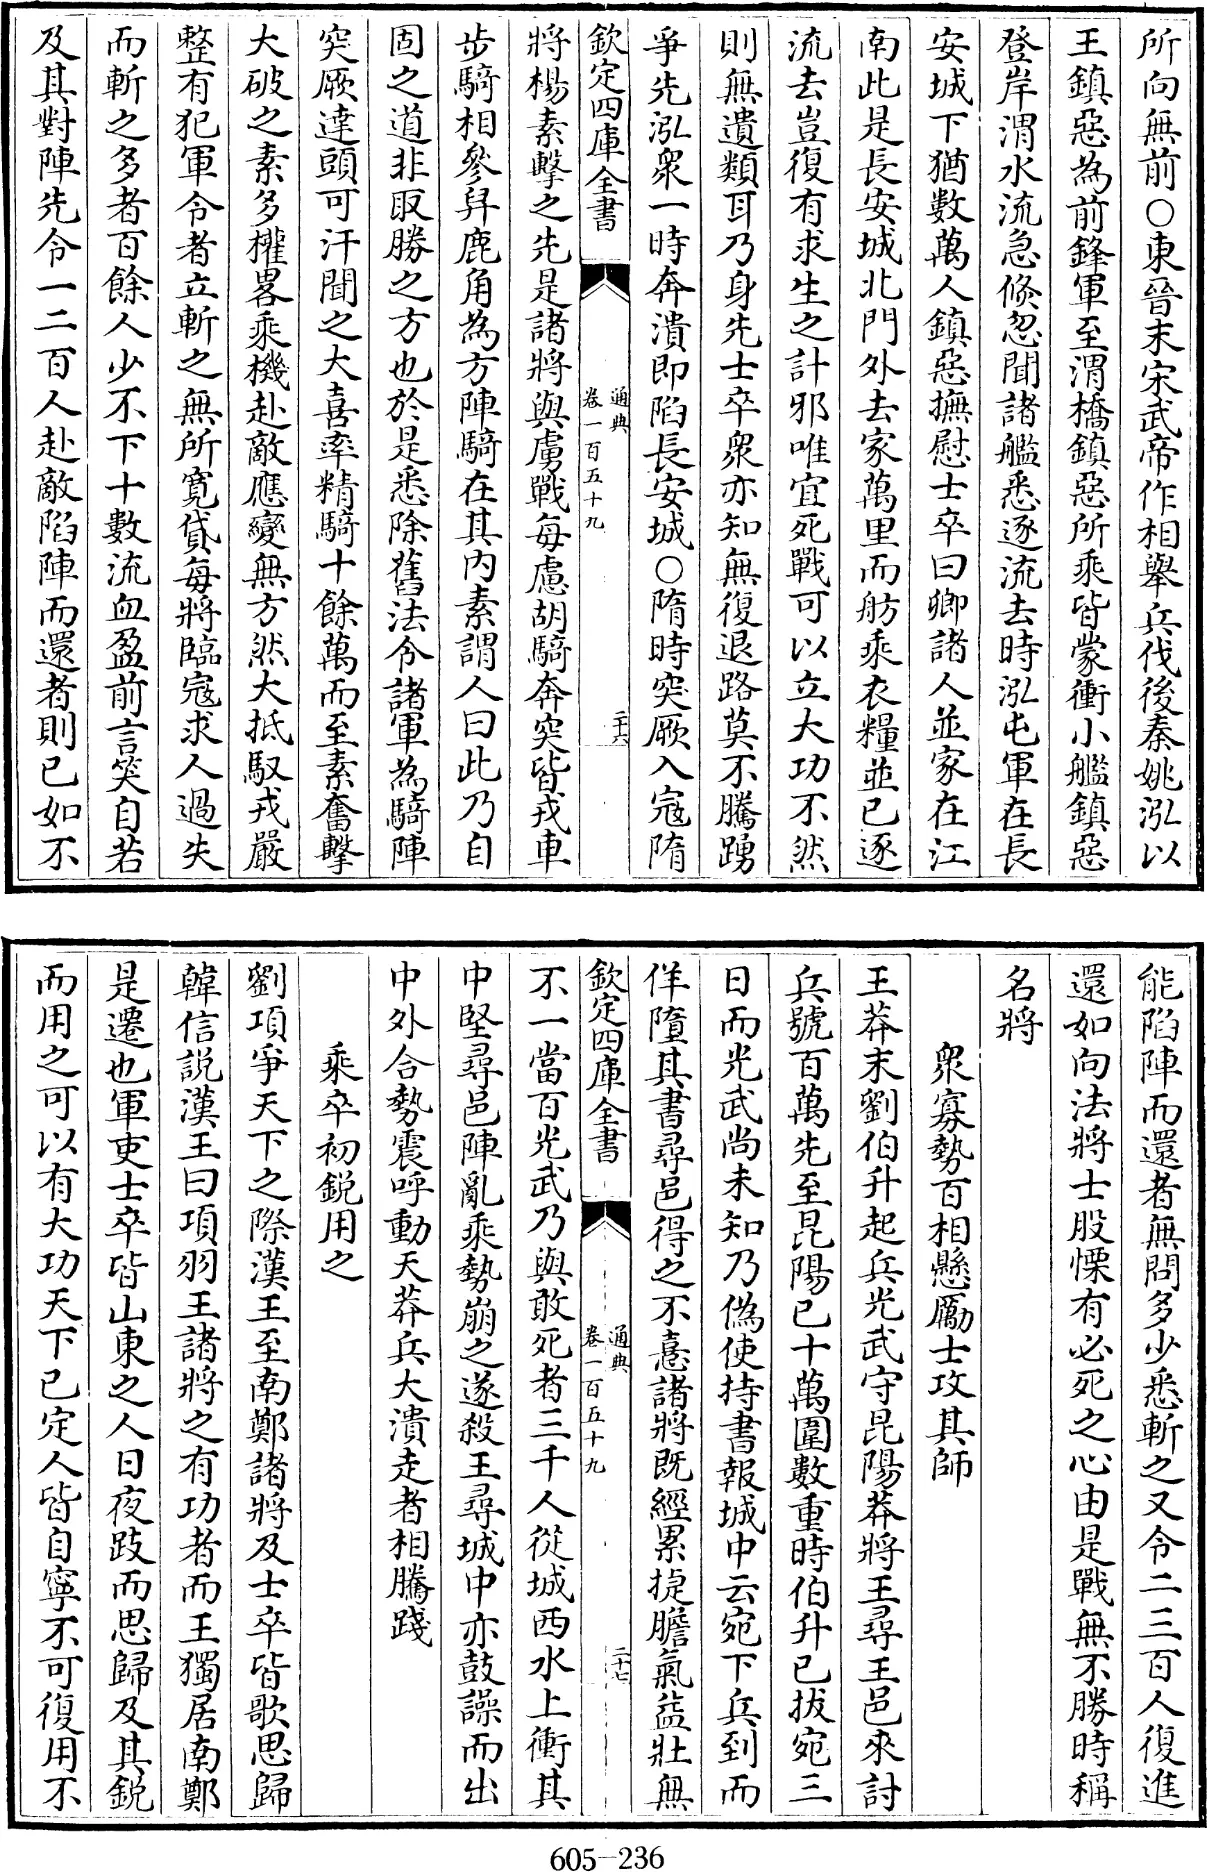 所向無前○東晉末宋武帝作相舉兵伐後秦姚泓以
王鎮惡為前鋒軍至渭橋鎮惡所乘皆蒙衝小艦鎮惡
登岸渭水流急倐忽聞諸艦悉逐流去時泓屯軍在長
安城下猶數萬人鎮惡撫慰士卒曰卿諸人並家在江
南此是長安城北門外去家萬里而舫乘衣糧並已逐
流去豈復有求生之計邪唯宜死戰可以立大功不然
則無遺類耳乃身先士卒衆亦知無復退路莫不騰踴
爭先泓衆一時奔潰即陷長安城○隋時突厥入寇隋
欽定四庫全書
通典
卷一百五十九
二十六
將楊素擊之先是諸將與虜戰每慮胡騎奔突皆戎車
步騎相參舁鹿角為方陣騎在其内素謂人曰此乃自
固之道非取勝之方也於是悉除舊法令諸軍為騎陣
突厥達頭可汗聞之大喜率精騎十餘萬而至素奮擊
大破之素多權畧乘機赴敵應變無方然大抵馭戎嚴
整有犯軍令者立斬之無所寬貸每將臨寇求人過失
而斬之多者百餘人少不下十數流血盈前言笑自若
及其對陣先令一二百人赴敵陷陣而還者則已如不
能陷陣而還者無問多少悉斬之又令二三百人復進
還如向法將士股慄有必死之心由是戰無不勝時稱
名將
衆寡勢百相懸勵士攻其師
王莽末劉伯升起兵光武守昆陽莽將王尋王邑來討
兵號百萬先至昆陽已十萬圍數重時伯升已拔宛三
日而光武尚未知乃偽使持書報城中云宛下兵到而
佯墮其書尋邑得之不憙諸將既經累捷膽氣益壯無
欽定四庫全書
通典
卷一百五十九
二十七
不一當百光武乃與敢死者三千人從城西水上衝其
中堅尋邑陣亂乘勢崩之遂殺王尋城中亦鼓譟而出
中外合勢震呼動天莽兵大潰走者相騰踐
乘卒初鋭用之
劉項爭天下之際漢王至南鄭諸將及士卒皆歌思歸
韓信説漢王曰項羽王諸將之有功者而王獨居南鄭
是遷也軍吏士卒皆山東之人日夜跂而思歸及其鋭
而用之可以有大功天下已定人皆自寧不可復用不
605-236